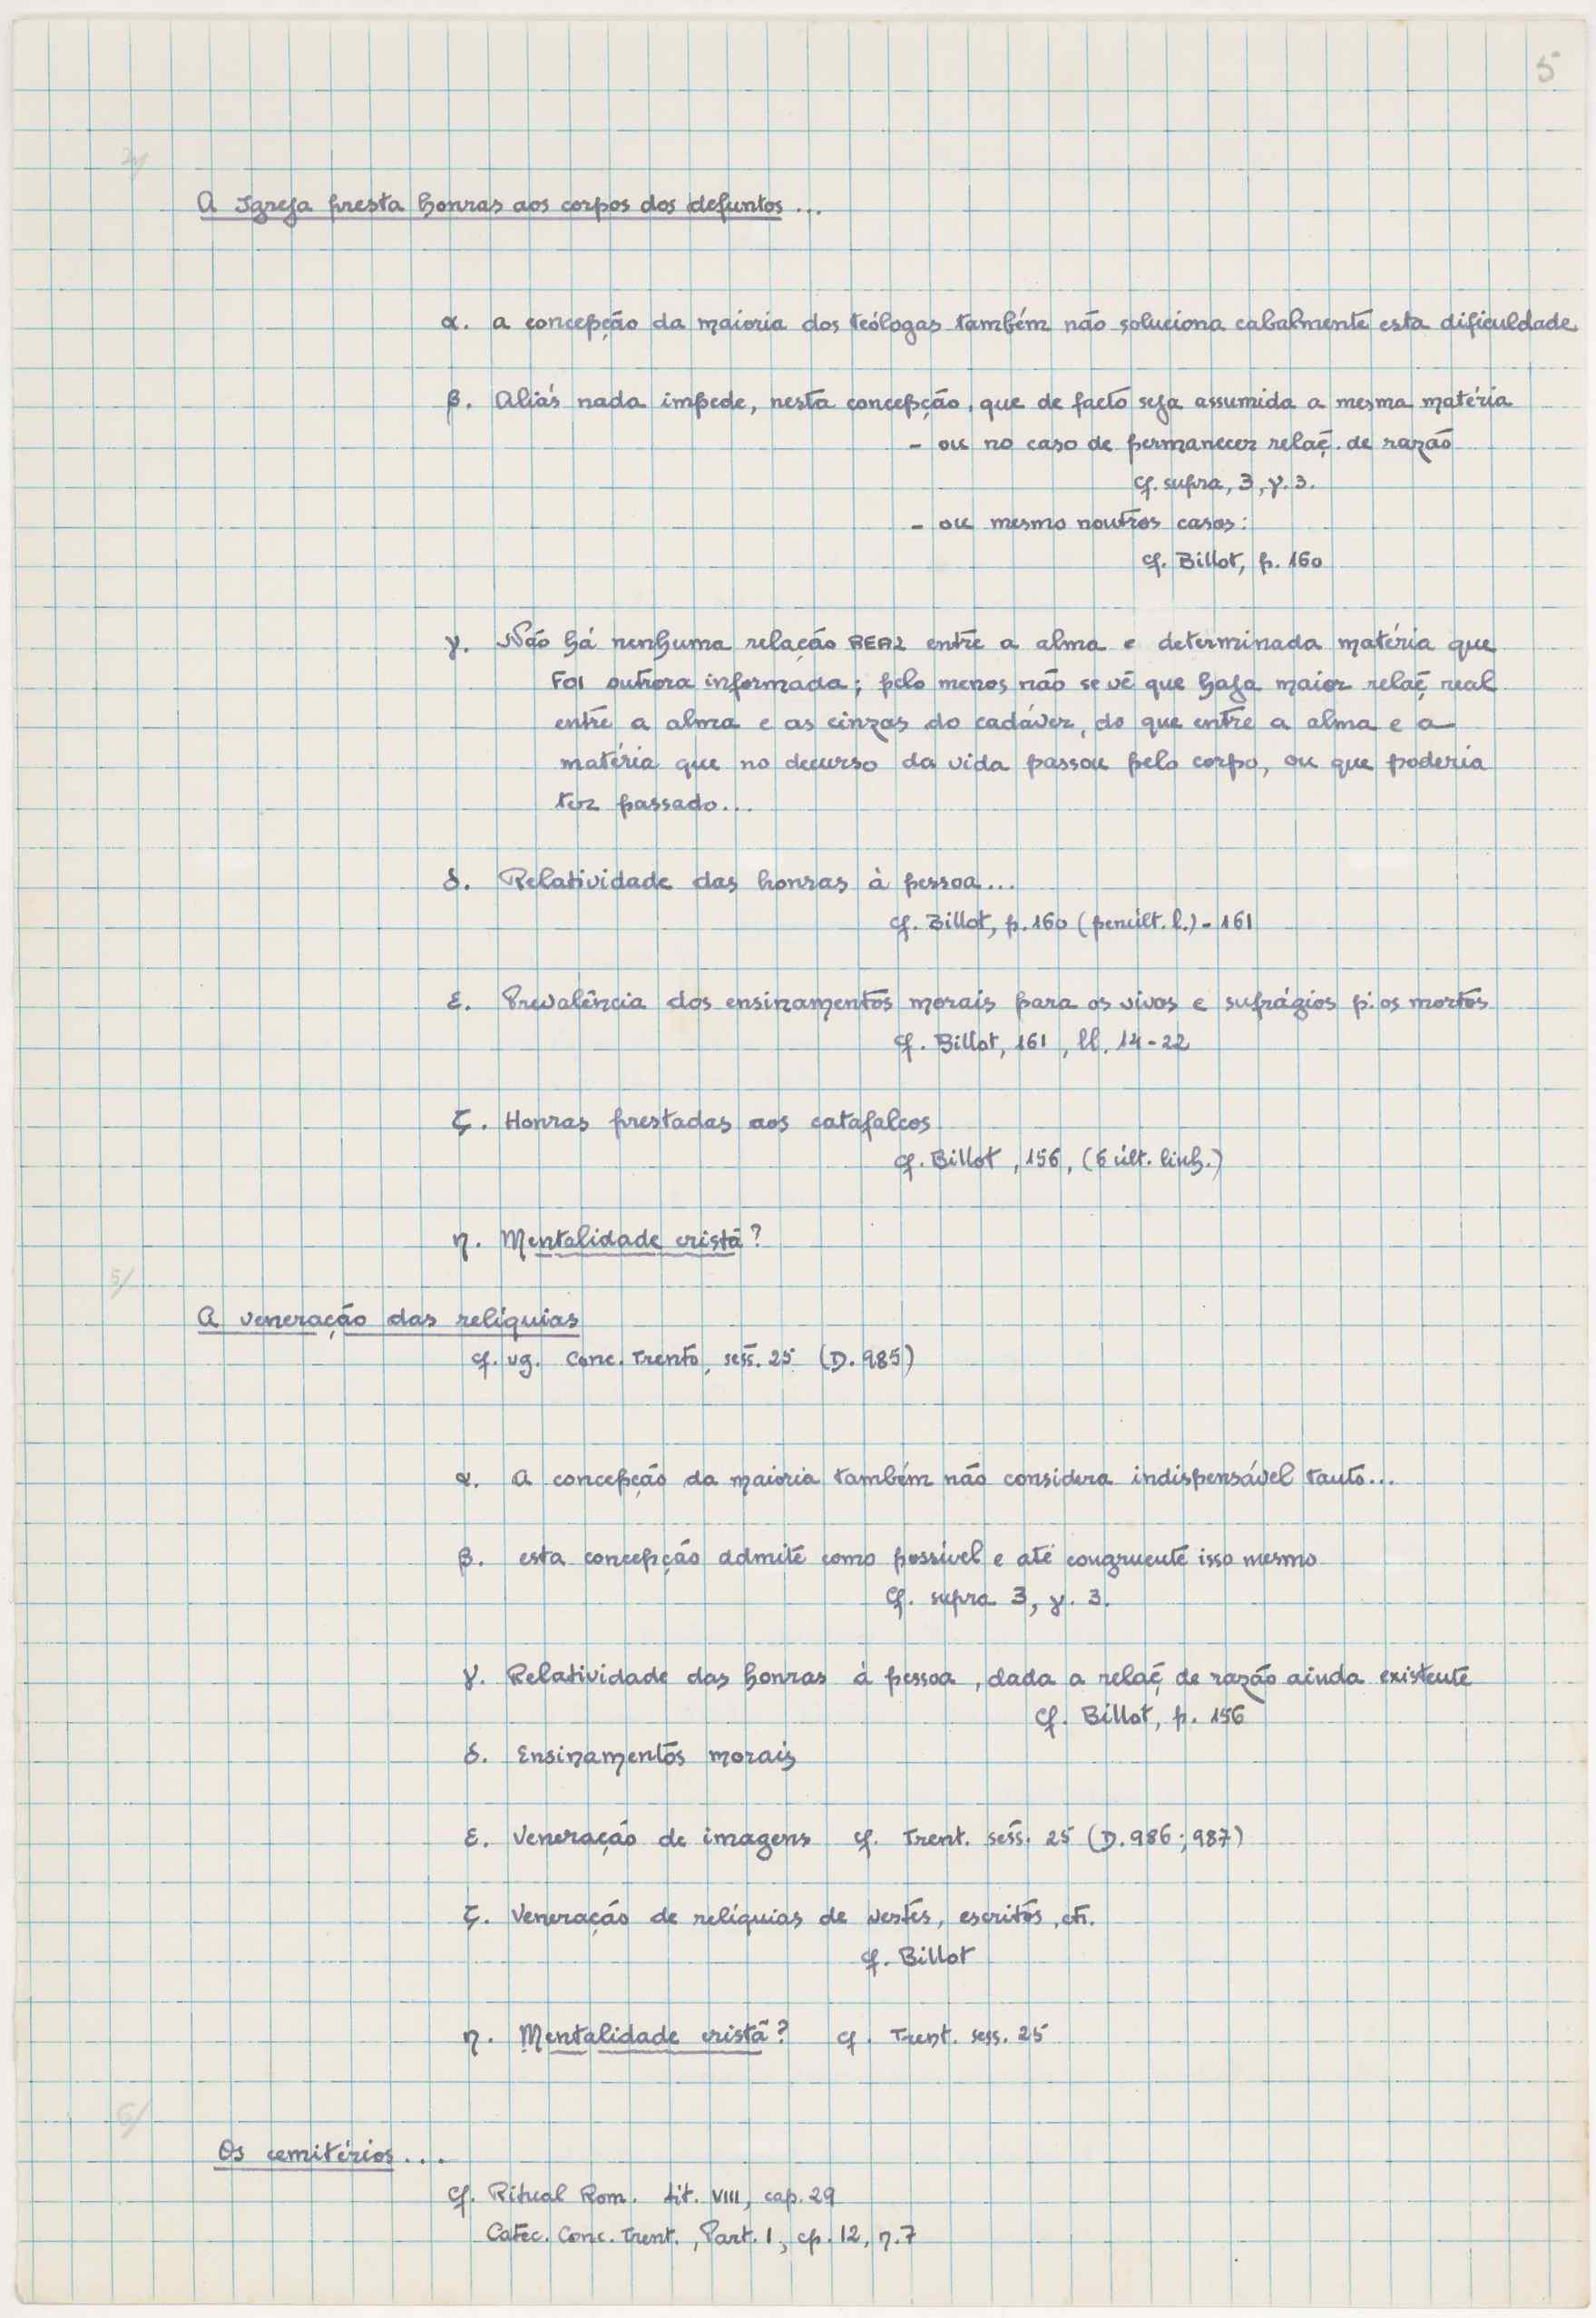 5
A Igreja presta honras aos corpos dos defuntos ...
α. a concepção da maioria dos teólogos também não soluciona cabalmente esta dificuldade
β. Aliás nada impede, nesta concepção, que de facto seja assumida a mesma matéria
- ou no caso de permanecer relaç. de razão
cf. supra, 3, γ. 3.
- ou mesmo noutros casos:
cf. Billot, p. 160
γ. Não há nenhuma relação REAL entre a alma e determinada matéria que
FOI outrora informada; pelo menos não se vê que haja maior relaç real
entre a alma e as cinzas do cadáver, do que entre a alma e a
matéria que no decurso da vida passou pelo corpo, ou que poderia
ter passado...
δ. Relatividade das honras à pessoa...
cf. Billot, p. 160 (penúlt. l.) - 161
ε. Prevalência dos ensinamentos morais para os vivos e sufrágios p. os mortos
cf. Billot, 161, ll. 14-22
ζ. Honras prestadas aos catafalcos
cf. Billot, 156, (6 últ. linh.)
η. Mentalidade cristã?
5/
A veneração das relíquias
cf. vg. Conc. Trento, sess. 25 (D. 985)
α. A concepção da maioria também não considera indispensável tanto...
β. esta concepção admite como possível e até congruente isso mesmo
Cf. supra 3, γ. 3.
γ. Relatividade das honras à pessoa, dada a relaç de razão ainda existente
Cf. Billot, p. 156
δ. Ensinamentos morais
ε. Veneração de imagens cf. Trent. sess. 25 (D. 986; 987)
ζ. Veneração de relíquias de vestes, escritos, etc.
cf. Billot
η. Mentalidade cristã? cf. Trent. sess. 25
6/
Os cemitérios....
cf. Ritual Rom. tit. VIII, cap. 29
Catec. Conc. Trent., Part. I, cp. 12, n. 7